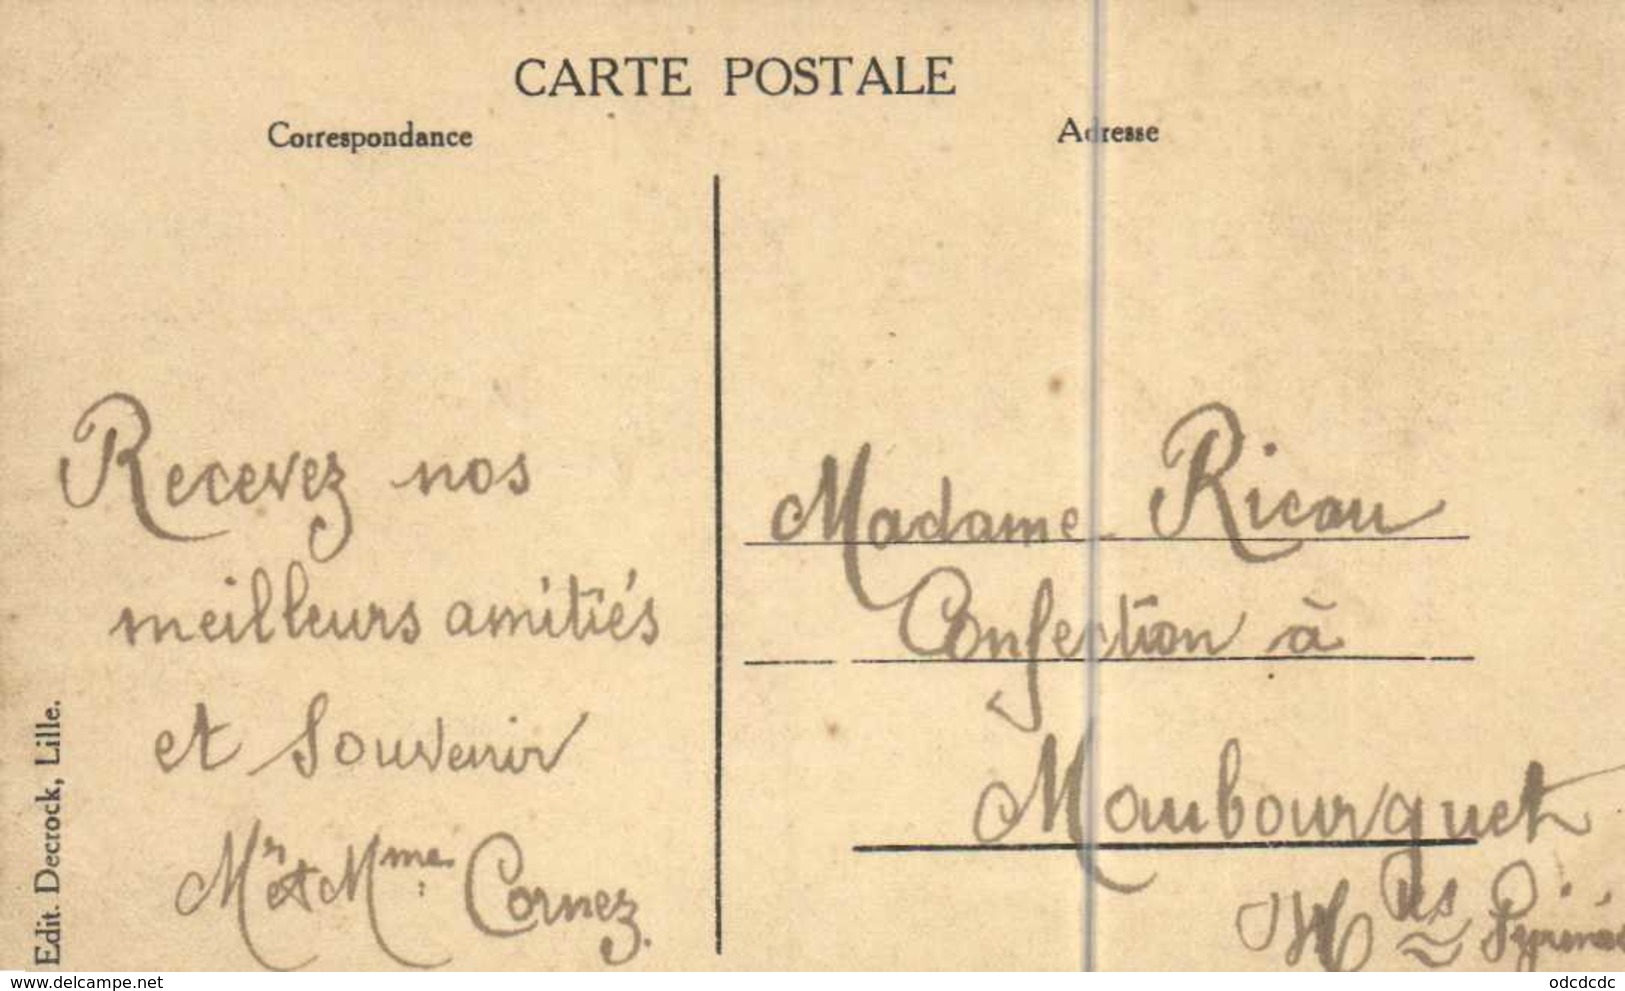 CARTE POSTALE
Correspondance
Adresse
Recevez nos
meilleurs amitiés
et Souvenir
Mr et Mme Cornez.
Madame Ricau
Confection à
Maubourguet
Htes Pyrénées
Edit. Decrock, Lille.
www.delcampe.net
odcdcdc